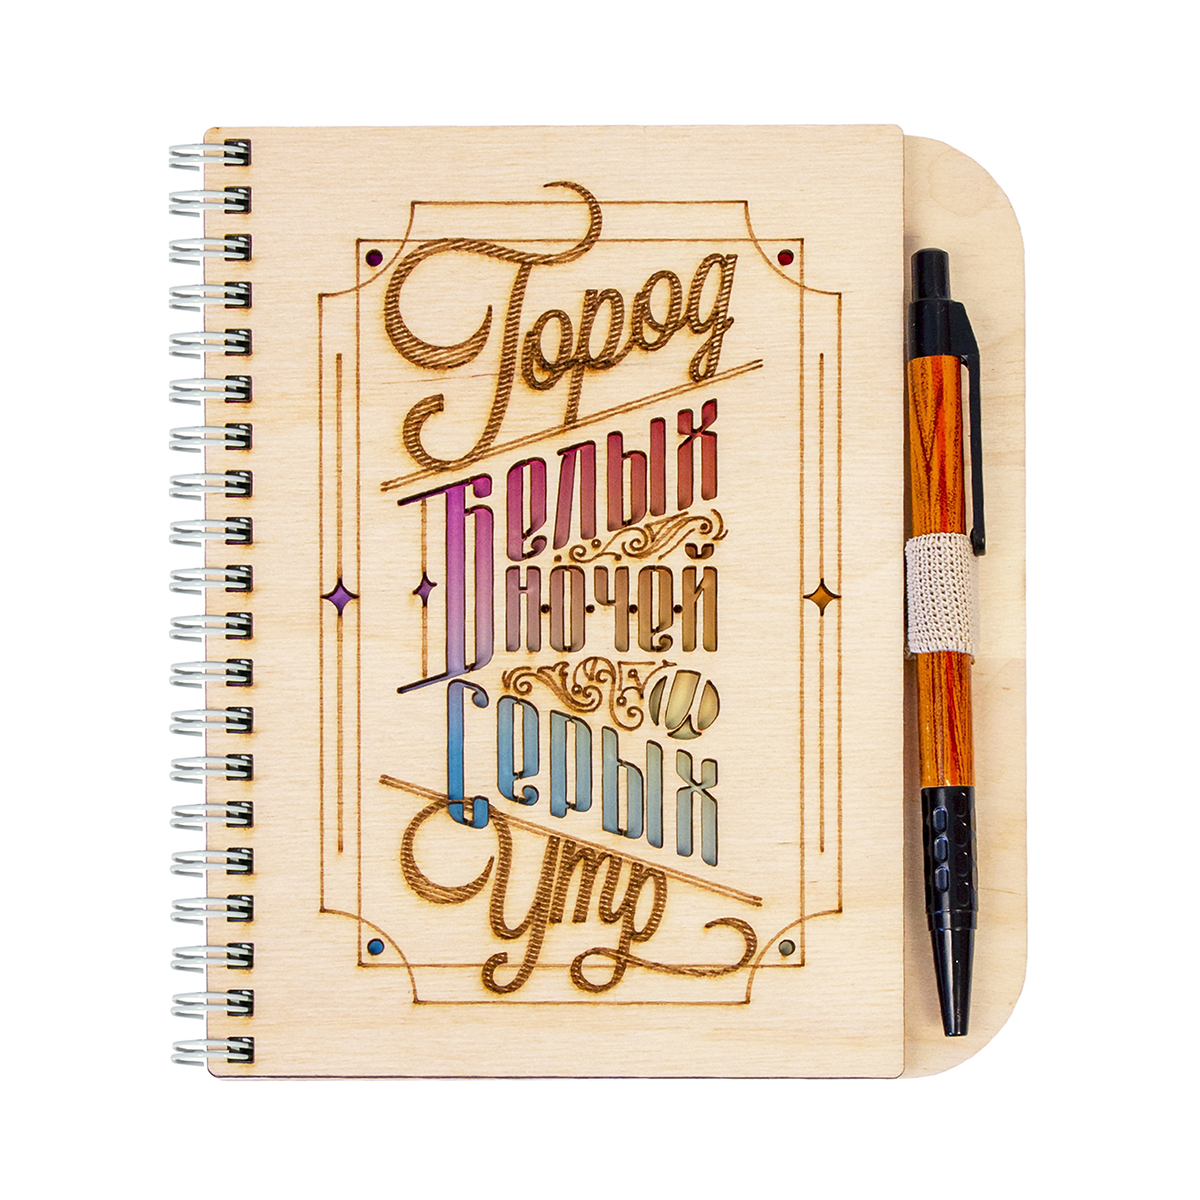 Город
Белых
ночей
и
Серых
Утр